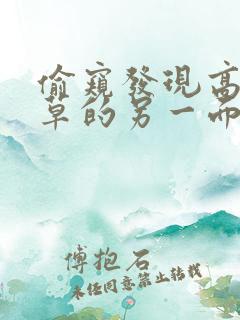 偷窺發現高
草的另一面
傅抱石
未任同意禁止轉載